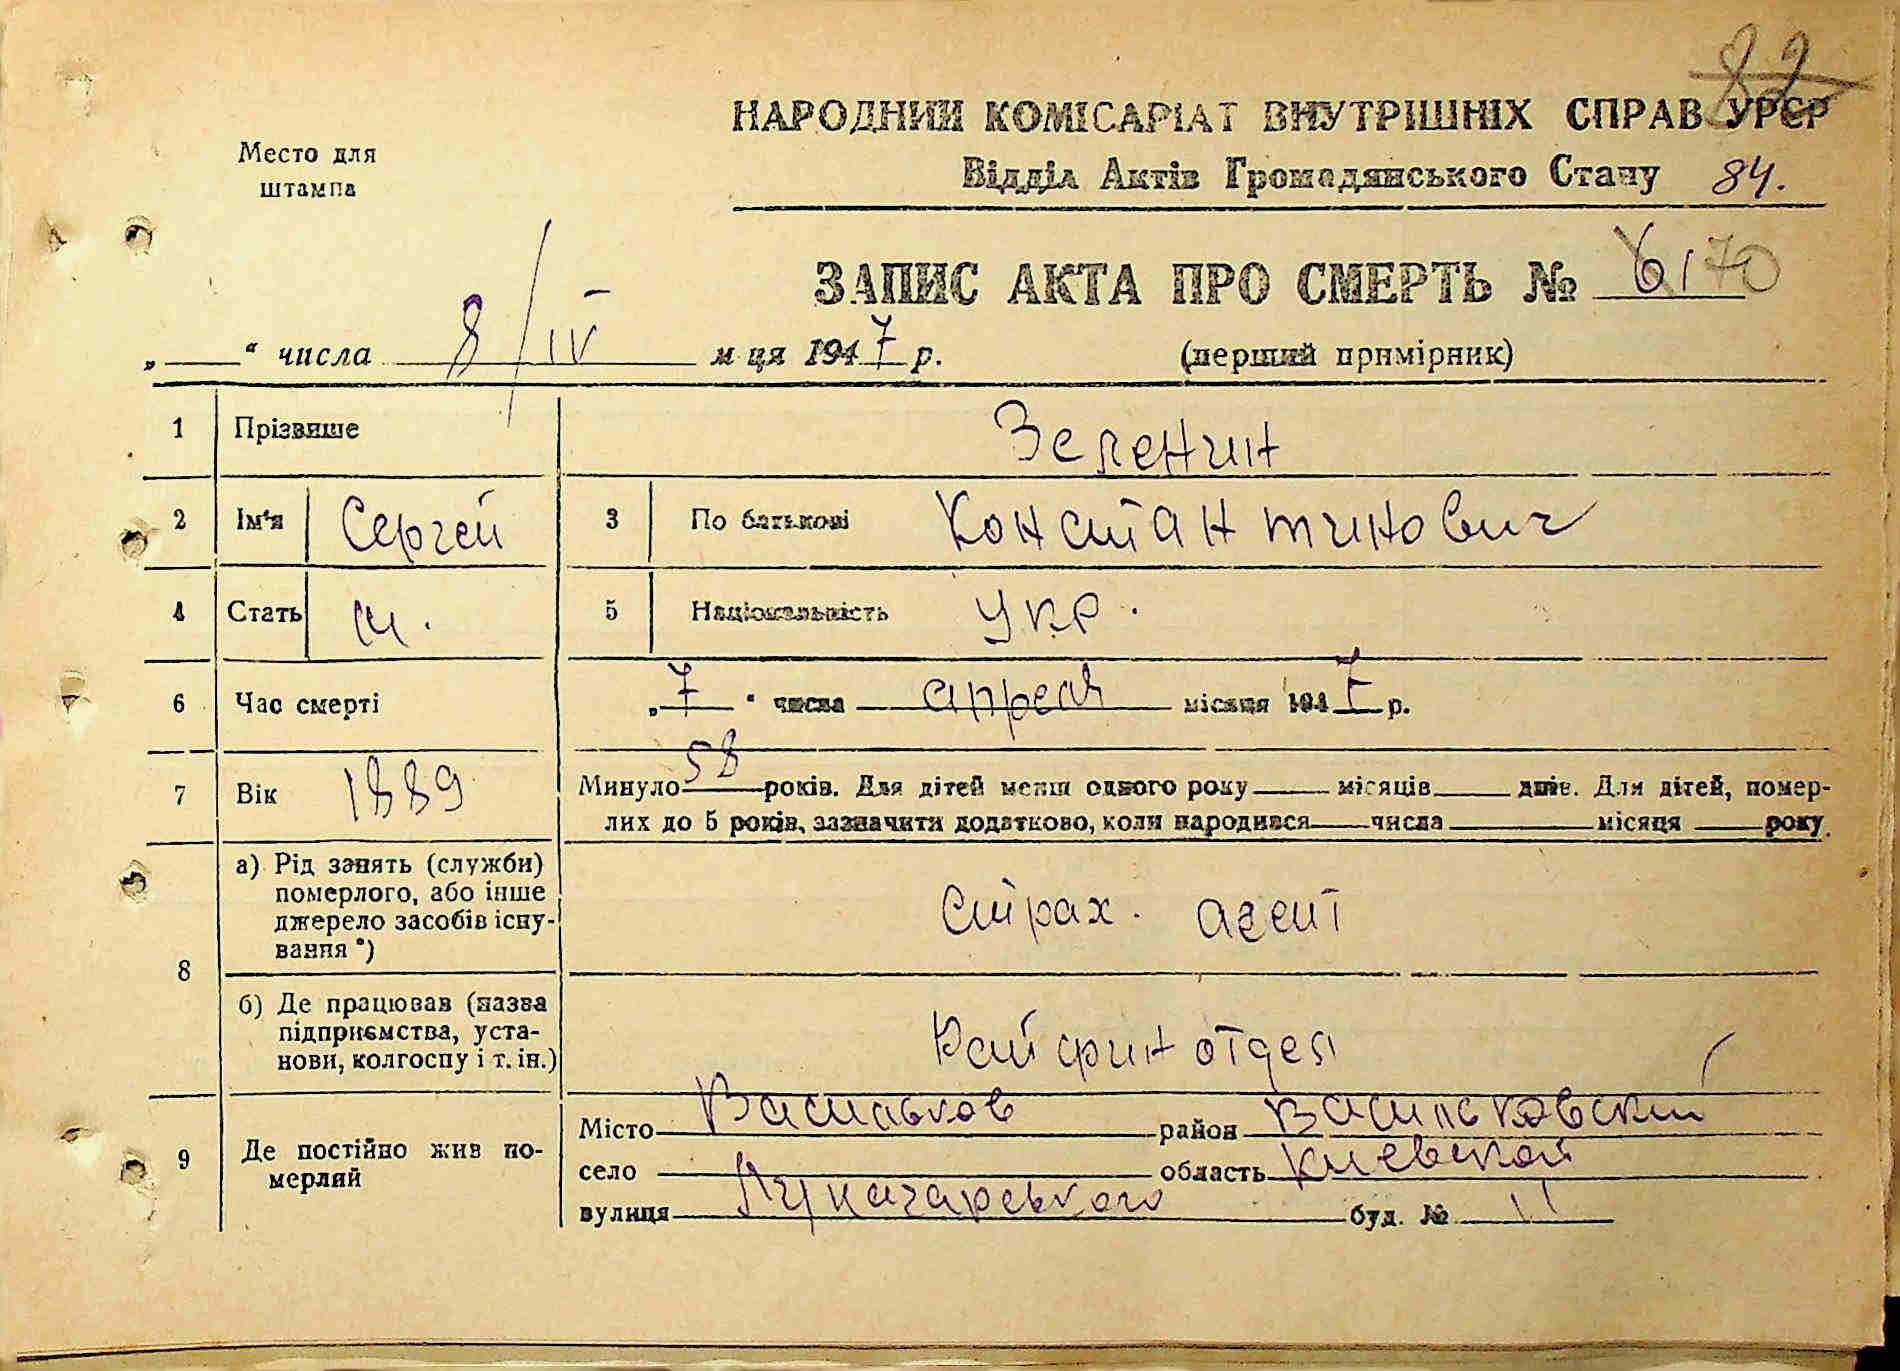 82
НАРОДНИЙ КОМІСАРІАТ ВНУТРІШНІХ СПРАВ УРСР
Место для
штампа
Відділ Актів Громадянського Стану 84.
ЗАПИС АКТА ПРО СМЕРТЬ № 61 70
„ “ числа 8/IV м-ця 1947 р. (перший примірник)
1 Прізвище Зеленин
2 Ім'я Сергей 3 По батькові Константинович
4 Стать м. 5 Національність укр.
6 Час смерті „7“ числа апреля місяця 1947 р.
7 Вік 1889 Минуло 58 років. Для дітей менш одного року місяців днів. Для дітей, помер-
лих до 5 років, зазначити додатково, коли народився числа місяця року.
8 а) Рід занять (служби)
померлого, або інше
джерело засобів існу-
вання *)
Страх. агент
б) Де працював (назва
підприємства, уста-
нови, колгоспу і т. ін.)
Райфинотдел
9 Де постійно жив по-
мерлий
Місто Васильков район Васильковский
село область Киевской
вулиця Луначарського буд. № 11